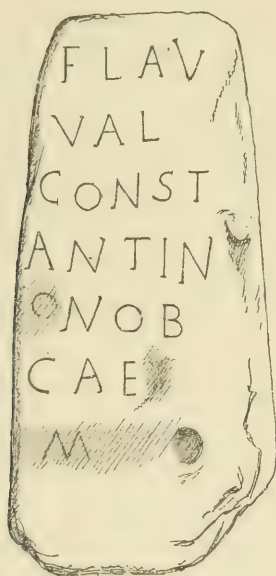 FLAV
VAL
CONST
ANTIN
ONOB
CAE
M